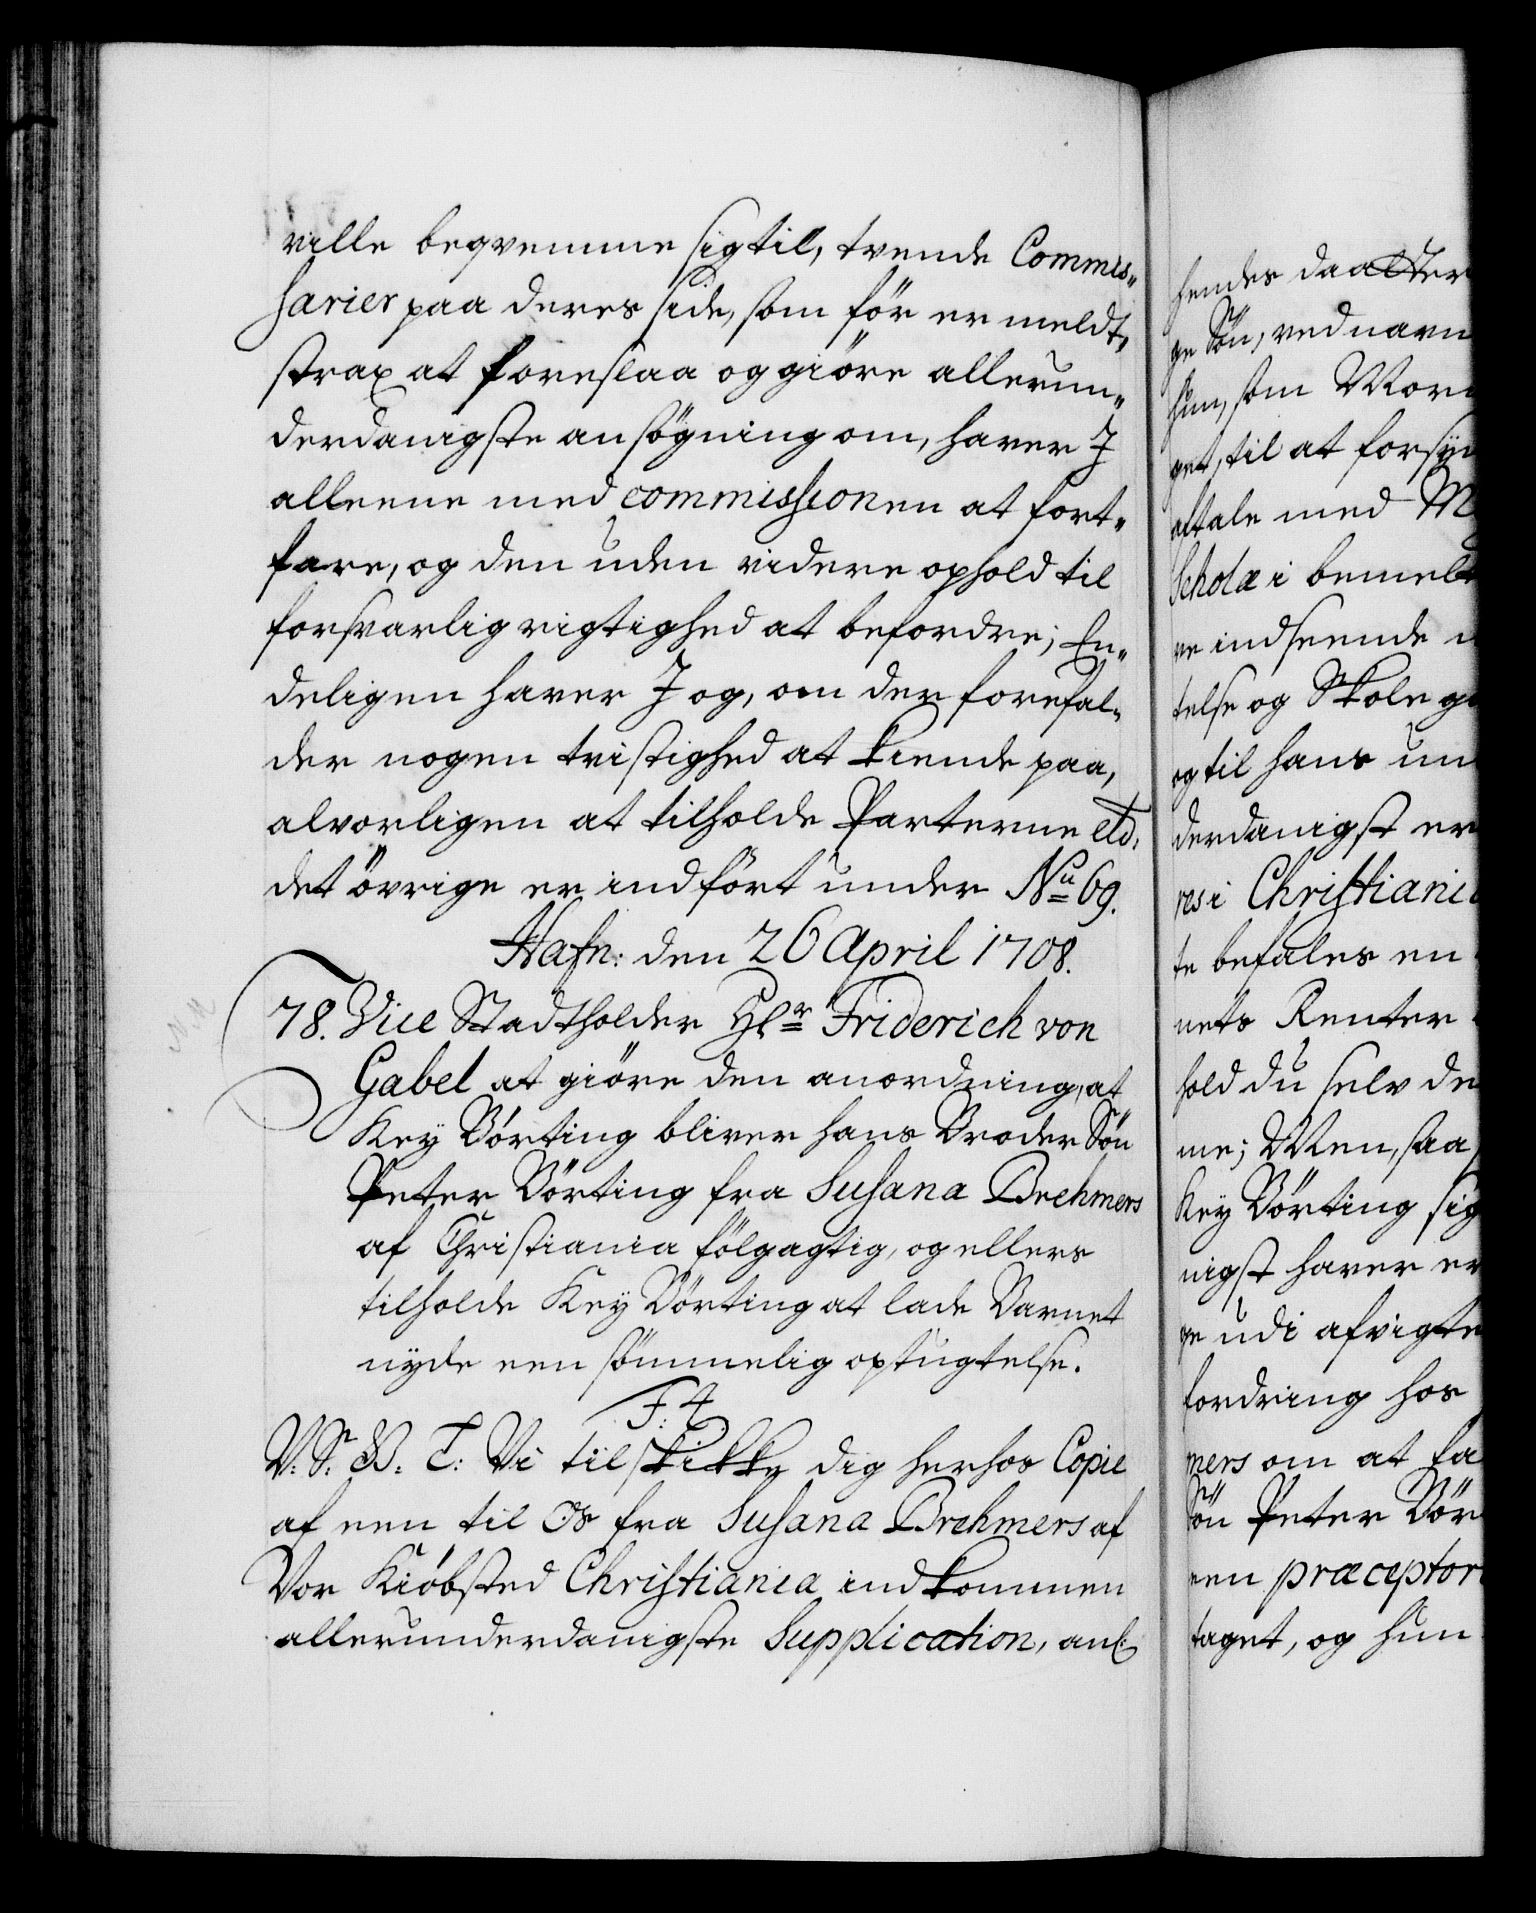 ville beqvemme sig til, tvende Commis„
sarier paa deres side, som för er meldt,
strax at foreslaa og giöre allerun„
derdanigste ansögning om, haver I
alleene med commissionen at fort„
fare, og den uden videre ophold til
forsvarlig rigtighed at befordre; En„
deligen haver I og, om der forefal„
der nogen tvistighed at kiende paa,
alvorligen at tilholde Parterne etc.
det övrige er indfört under No 69.
Hafn: den 26 April 1708.
78. Vice Stadtholder Hr Friderich von
Gabel at giöre den anordning, at
Key Börting bliver hans Broder Sön
Peter Börting fra Susana Brehmers
af Christiania fölgagtig, og ellers
tilholde Key Börting at lade Barnet
nyde een sömmelig optugtelse.
F: 4
V: S: B: T: Vi tilskikke dig herhos Copie
af een til Os fra Susana Brehmers af
Vor Kiöbsted Christiania indkommen
allerunderdanigste Supplication, anl:
hendes daatter
ge Sön, ved navn
hun, som Mor
get, til at forsy
aftale med M
Scholæ i bemel
re indseende
telse og Skole g
og til hans un
derdanigst er
res i Christiani
te befales en
nets Renter
hold du selv de
me; Men, saa
Key Börting sig
nigst haver er
ge udi afvigte
fordring hos
mers om at fa
Sön Peter Bör
een præceptor
taget, og hun